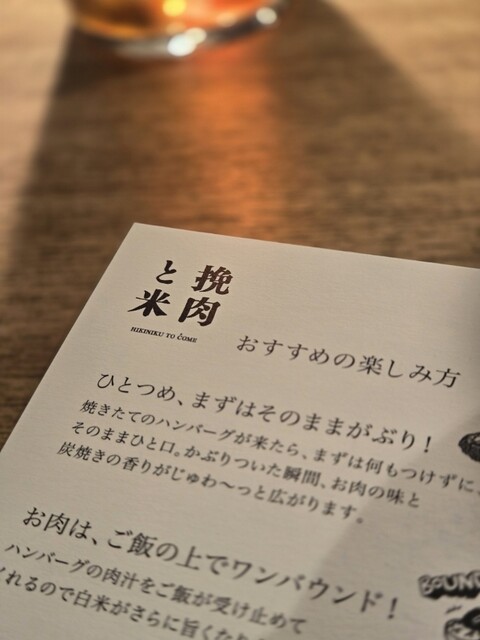 挽肉
と米
HIKINIKU TO COME
おすすめの楽しみ方
ひとつめ、まずはそのままがぶり！
焼きたてのハンバーグが来たら、まずは何もつけずに、
そのままひと口。かぶりついた瞬間、お肉の味と
炭焼きの香りがじゅわ〜っと広がります。
お肉は、ご飯の上でワンバウンド！
ハンバーグの肉汁をご飯が受け止めて
くれるので白米がさらに旨くなり
BOUN